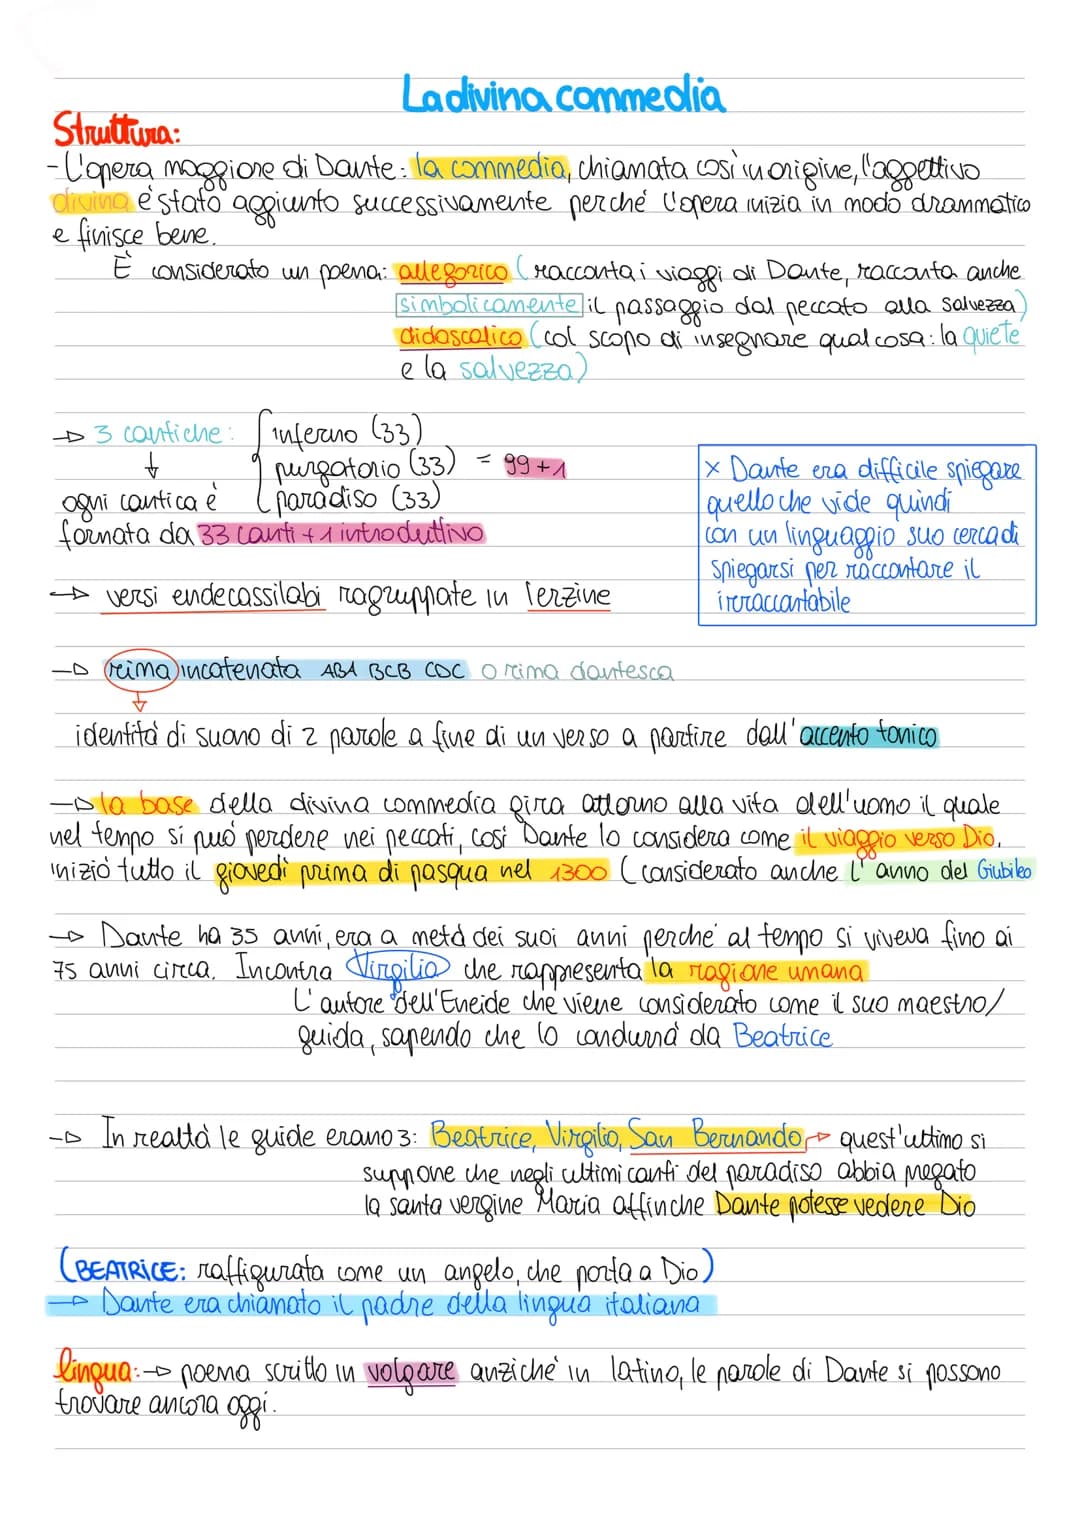 La divina commedia
Struttura:
- L'opera maggiore di Dante: la commedia, chiamata così in origine, l'aggettivo
divina è stato aggiunto successivamente perché l'opera inizia in modo drammatico
e finisce bene.
È considerato un poema: allegorico (racconta i viaggi di Dante, racconta anche
simbolicamente il passaggio dal peccato alla salvezza)
didascalico (col scopo di insegnare qualcosa: la quiete
e la salvezza)
→ 3 cantiche: inferno (33)
purgatorio (33) = 99+1
ogni cantica è paradiso (33)
formata da 33 canti + 1 introduttivo
x Dante era difficile spiegare
quello che vide quindi
con un linguaggio suo cerca di
spiegarsi per raccontare il
irraccontabile
→ versi endecassilabi raggruppate in terzine
→ rima incatenata ABA BCB CDC o rima dantesca
identità di suono di 2 parole a fine di un verso a partire dall'accento tonico
→ la base della divina commedia gira attorno alla vita dell'uomo il quale
nel tempo si può perdere nei peccati, così Dante lo considera come il viaggio verso Dio,
iniziò tutto il giovedì prima di pasqua nel 1300 (considerato anche l'anno del Giubileo
→ Dante ha 35 anni, era a metà dei suoi anni perché al tempo si viveva fino ai
75 anni circa. Incontra Virgilio che rappresenta la ragione umana
L'autore dell'Eneide che viene considerato come il suo maestro/
guida, sapendo che lo condurrà da Beatrice
→ In realtà le guide erano 3: Beatrice, Virgilio, San Bernando → quest'ultimo si
suppone che negli ultimi canti del paradiso abbia pregato
la santa vergine Maria affinche Dante potesse vedere Dio
(BEATRICE: raffigurata come un angelo, che porta a Dio)
→ Dante era chiamato il padre della lingua italiana
lingua: → poema scritto in volgare anziché in latino, le parole di Dante si possono
trovare ancora oggi.